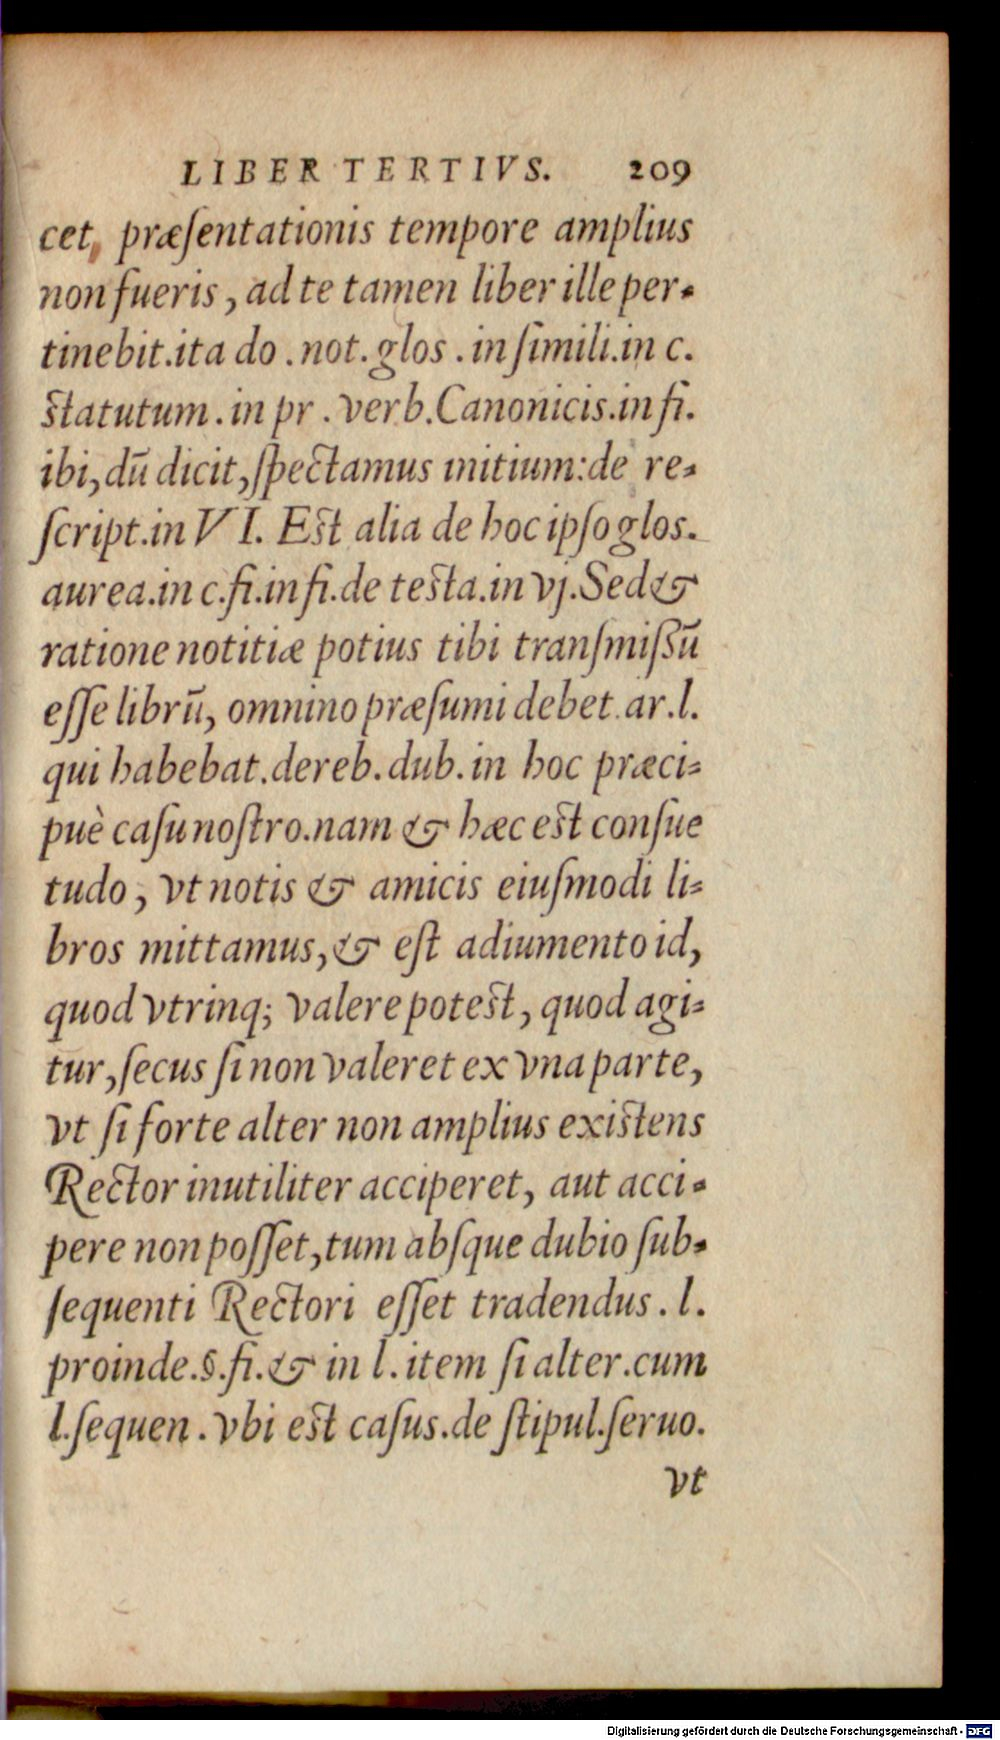 LIBER TERTIVS. 209
cet, præſentationis tempore amplius
non fueris, ad te tamen liber ille per-
tinebit.ita do. not. glos. in ſimili.in c.
ſtatutum. in pr. verb.Canonicis.in fi.
ibi, dū dicit, ſpectamus initium: de re-
ſcript.in VI. Eſt alia de hoc ipſo glos.
aurea.in c.fi.in fi.de teſta.in vj.Sed &
ratione notitiæ potius tibi tranſmiſſū
eſſe librū, omnino præſumi debet. ar.l.
qui habebat.de reb. dub. in hoc præci-
puè caſu noſtro.nam & hæc eſt conſue
tudo, vt notis & amicis eiuſmodi li-
bros mittamus, & eſt adiumento id,
quod vtrinq; valere poteſt, quod agi-
tur, ſecus ſi non valeret ex vna parte,
vt ſi forte alter non amplius exiſtens
Rector inutiliter acciperet, aut acci-
pere non poſſet, tum abſque dubio ſub-
ſequenti Rectori eſſet tradendus. l.
proinde.§.fi.& in l. item ſi alter.cum
l.ſequen. vbi eſt caſus.de ſtipul.ſeruo.
vt
Digitalisierung gefördert durch die Deutsche Forschungsgemeinschaft - DFG